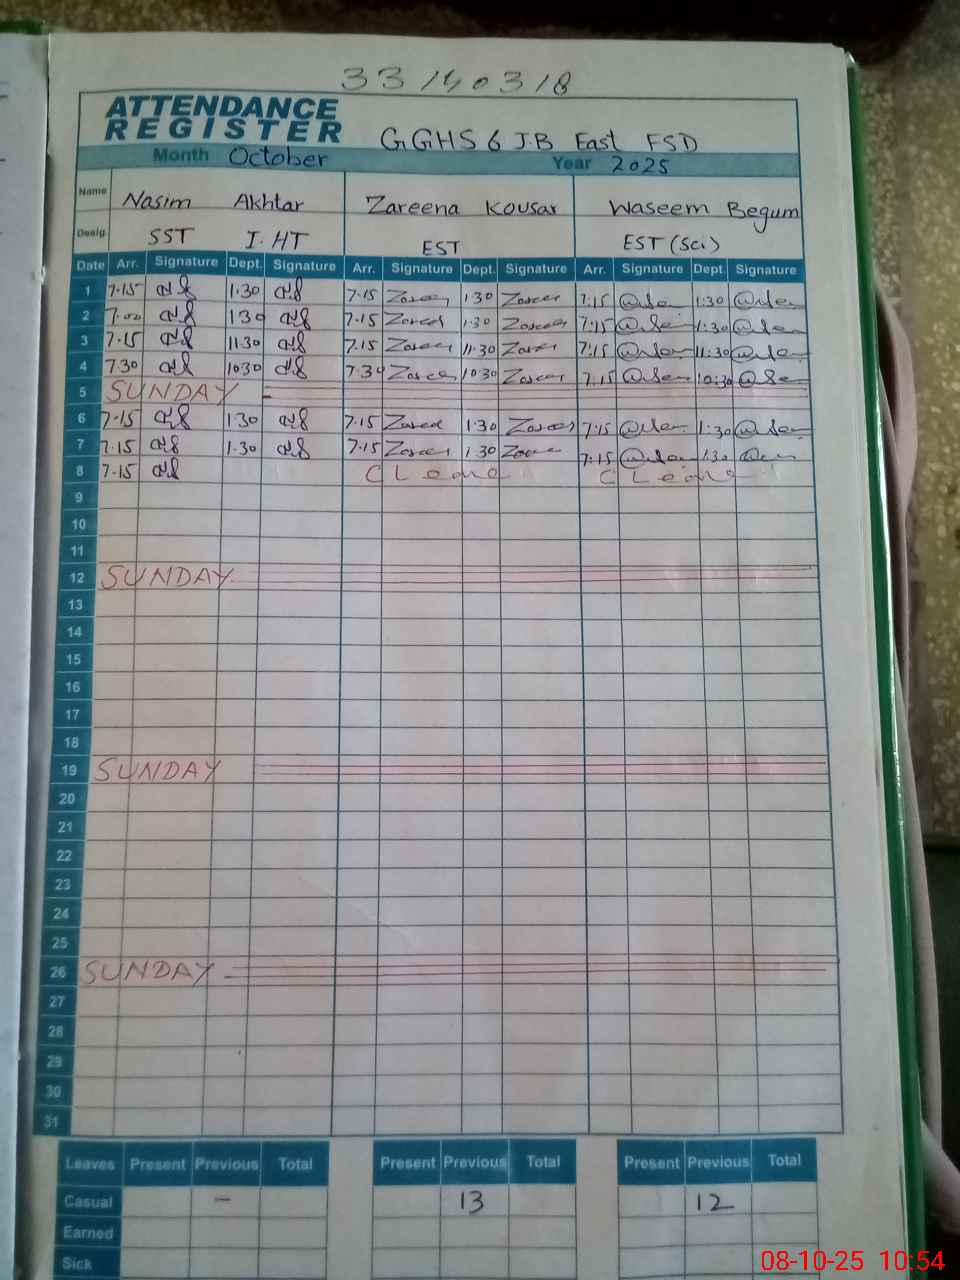 33140318
ATTENDANCE
REGISTER GGHS 6 J.B East FSD
Month October Year 2025
Name Nasim Akhtar Zareena Kousar Waseem Begum
Desig. SST I. HT EST EST (Sci)
Date Arr. Signature Dept. Signature Arr. Signature Dept. Signature Arr. Signature Dept. Signature
1 7.15 1.30 7.15 1.30 7:15 1:30
2 7.00 1.30 7.15 1.30 7:15 1:30
3 7.15 11.30 7.15 11.30 7:15 11:30
4 7.30 10.30 7.30 10.30 7:15 10:30
5 SUNDAY
6 7.15 1.30 7.15 1.30 7:15 1:30
7 7.15 1.30 7.15 1.30 7:15 1:30
8 7.15 C Leave C Leave
9
10
11
12 SUNDAY
13
14
15
16
17
18
19 SUNDAY
20
21
22
23
24
25
26 SUNDAY
27
28
29
30
31
Leaves Present Previous Total Present Previous Total Present Previous Total
Casual - 13 12
Earned
Sick
08-10-25 10:54